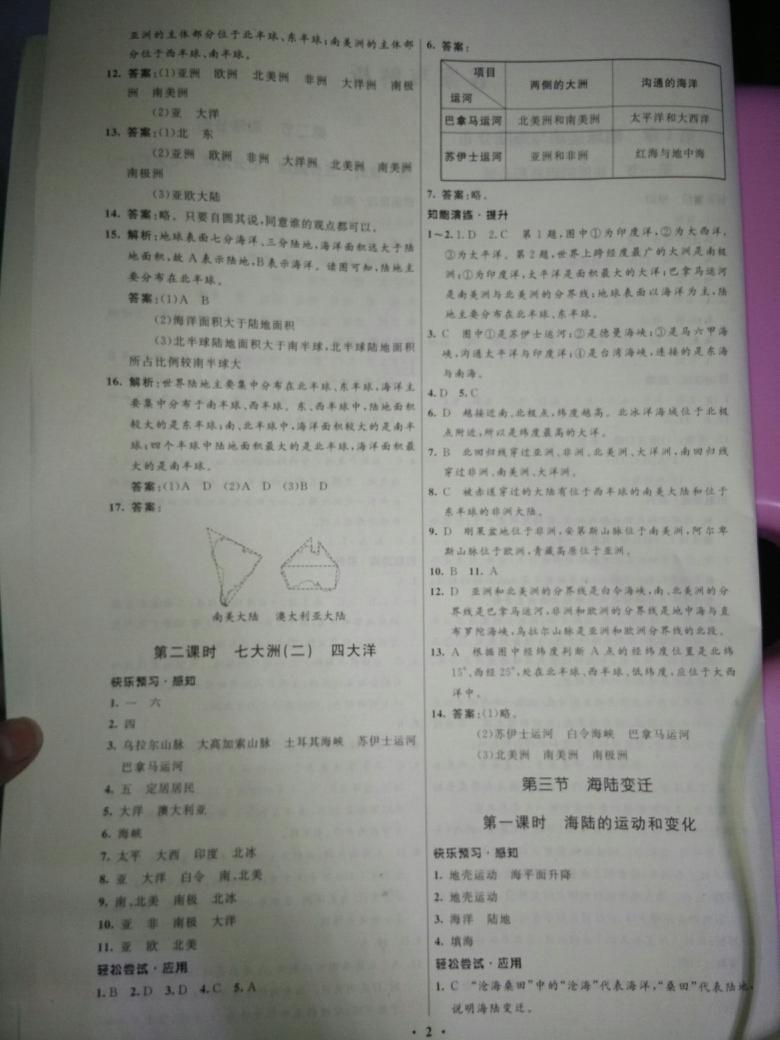 亚洲的主体部分位于北半球、东半球;南美洲的主体部
分位于西半球、南半球。
12. 答案:(1)亚洲 欧洲 北美洲 非洲 大洋洲 南极
洲 南美洲
(2)亚 大洋
13. 答案:(1)北 东
(2)亚洲 欧洲 非洲 大洋洲 北美洲 南美洲
南极洲
(3)亚欧大陆
14. 答案:略。只要自圆其说,同意谁的观点都可以。
15. 解析:地球表面七分海洋、三分陆地,海洋面积远大于陆
地面积,故A表示陆地,B表示海洋。读图可知,陆地主
要分布在北半球。
答案:(1)A B
(2)海洋面积大于陆地面积
(3)北半球陆地面积大于南半球,北半球陆地面积
所占比例较南半球大
16. 解析:世界陆地主要集中分布在北半球、东半球,海洋主
要集中分布于南半球、西半球。东、西半球中,陆地面积
较大的是东半球;南、北半球中,海洋面积较大的是南半
球;四个半球中陆地面积最大的是北半球,海洋面积最
大的是南半球。
答案:(1)A D (2)A D (3)B D
17. 答案:
南美大陆 澳大利亚大陆
第二课时 七大洲(二) 四大洋
快乐预习·感知
1. 一 六
2. 四
3. 乌拉尔山脉 大高加索山脉 土耳其海峡 苏伊士运河
巴拿马运河
4. 五 定居居民
5. 大洋 澳大利亚
6. 海峡
7. 太平 大西 印度 北冰
8. 亚 大洋 白令 南、北美
9. 南、北美 南极 北冰
10. 亚 非 南极 大洋
11. 亚 欧 北美
轻松尝试·应用
1. B 2. D 3. D 4. C 5. A
6. 答案:
项目 两侧的大洲 沟通的海洋
运河
巴拿马运河 北美洲和南美洲 太平洋和大西洋
苏伊士运河 亚洲和非洲 红海与地中海
7. 答案:略。
知能演练·提升
1~2. 1. D 2. C 第1题,图中①为印度洋,②为大西洋,
③为太平洋。第2题,世界上跨经度最广的大洲是南极
洲;①为印度洋,太平洋是面积最大的大洋;巴拿马运河
是南美洲与北美洲的分界线;地球表面以海洋为主,陆
地主要分布在北半球、东半球。
3. C 图中①是苏伊士运河;②是德曼海峡;③是马六甲海
峡,沟通太平洋与印度洋;④是台湾海峡,连接的是东海
与南海。
4. D 5. C
6. D 越接近南、北极点,纬度越高。北冰洋海域位于北极
点附近,所以是纬度最高的大洋。
7. B 北回归线穿过亚洲、非洲、北美洲、大洋洲,南回归线
穿过非洲、南美洲、大洋洲。
8. C 被赤道穿过的大陆有位于西半球的南美大陆和位于
东半球的非洲大陆。
9. D 刚果盆地位于非洲,安第斯山脉位于南美洲,阿尔卑
斯山脉位于欧洲,青藏高原位于亚洲。
10. B 11. A
12. D 亚洲和北美洲的分界线是白令海峡,南、北美洲的分
界线是巴拿马运河,非洲和欧洲的分界线是地中海与直
布罗陀海峡,乌拉尔山脉是亚洲和欧洲分界线的北段。
13. A 根据图中经纬度判断A点的经纬度位置是北纬
15°、西经25°,处在北半球、西半球、低纬度,应位于大西
洋中。
14. 答案:(1)略。
(2)苏伊士运河 白令海峡 巴拿马运河
(3)北美洲 南美洲 南极洲
第三节 海陆变迁
第一课时 海陆的运动和变化
快乐预习·感知
1. 地壳运动 海平面升降
2. 地壳运动
3. 海洋 陆地
4. 填海
轻松尝试·应用
1. C “沧海桑田”中的“沧海”代表海洋,“桑田”代表陆地,
说明海陆变迁。
· 2 ·